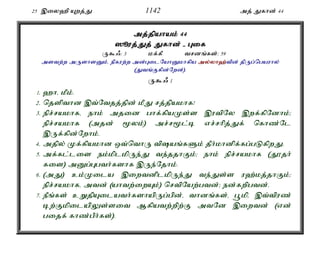 25 இலைஹி யுறத்து 1142 அத் துகான் 44
அத்தியாயம் 44
ஸூரத்துத் துகான் - புகை
ருகூஃ: 3 மக்கீ வசனங்கள்: 59
அளவற்ற அருளாளனும், நிகரற்ற அன்புடையோனுமாகிய அல்லாஹ்வின் திருப்பெயரால்
(துவங்குகின்றேன்)
ருகூஃ 1
1. ஹா, மீம்.
2. தெளிவான இவ்வேதத்தின் மீது சத்தியமாக!
3. நிச்சயமாக, நாம் அதனை பாக்கியமுள்ள இரவிலே இறக்கினோம்;
நிச்சயமாக (அதன் மூலம்) அச்சமூட்டி எச்சரித்துக் கொண்டே
இருக்கின்றோம்.
4. அதில் முக்கியமான ஒவ்வொரு விஷயங்களும் தீர்மானிக்கப்படுகிறது.
5. அக்கட்டளை நம்மிடமிருந்து வந்ததாகும்; நாம் நிச்சயமாக (தூதர்
களை) அனுப்புவர்களாக இருந்தோம்.
6. (அது) உம்முடைய இறைவனிடமிருந்து வந்துள்ள ரஹ்மத்தாகும்;
நிச்சயமாக, அவன் (யாவற்றையும்) செவியேற்பவன்; நன்கறிபவன்.
7. நீங்கள் உறுதியுடையவர்களாயிருப்பின், வானங்கள், பூமி, இவ்விரண்
டிற்குமிடையிலுள்ளவை ஆகியவற்றிற்கு அவனே இறைவன் (என்
பதைக் காண்பீர்கள்).